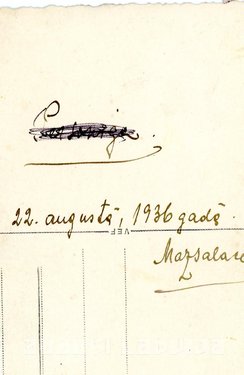 22. augustā, 1936 gadā.
VEF
Mazsalacā